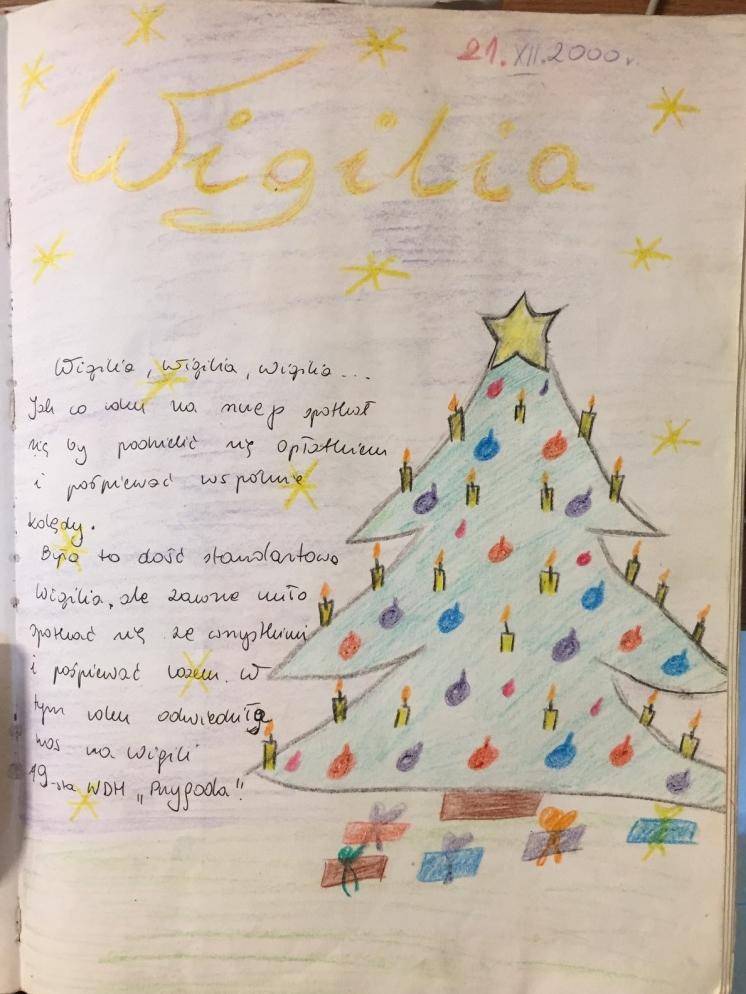 21.XII.2000r.
Wigilia
Wigilia, wigilia, wigilia...
Jak co roku na spotkał
się by podzielić się opłatkiem
i pośpiewać wspólnie
kolędy.
Była to dość standartowa
Wigilia, ale zawsze miło
spotkać się ze wszystkimi
i pośpiewać razem. W
tym roku odwiedziła
nas na Wigili
19-sta WDH „Przygoda".